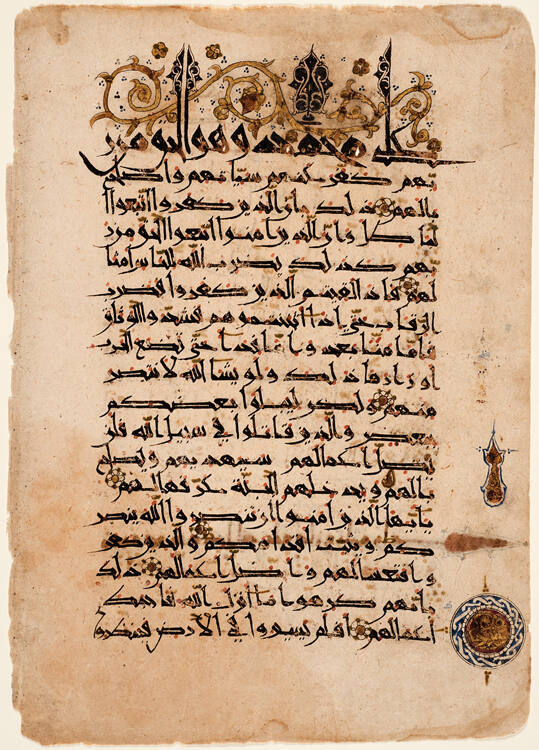 على محمد وهو الحق من ر
بهم كفر عنهم سياتهم واصلح
بالهم ذلك بان الذين كفروا اتبعوا ا
لباطل وان الذين امنوا اتبعوا الحق من ر
بهم كذلك يضرب الله للناس امثا
لهم فاذا لقيتم الذين كفروا فضرب
الرقاب حتى اذا اثخنتموهم فشدوا الوثاق
فاما منا بعد واما فدا حتى تضع الحرب
اوزارها ذلك ولو يشا الله لانتصر
منهم ولكن ليبلوا بعضكم
ببعض والذين قاتلوا في سبيل الله فلن
يضل اعمالهم سيهديهم ويصلح
بالهم ويدخلهم الجنة عرفها لهم
يايها الذين امنوا ان تنصروا الله ينصر
كم ويثبت اقدامكم والذين كفر
وا فتعسا لهم واضل اعمالهم ذلك
بانهم كرهوا ما انزل الله فاحبط
اعمالهم افلم يسيروا في الارض فينظروا